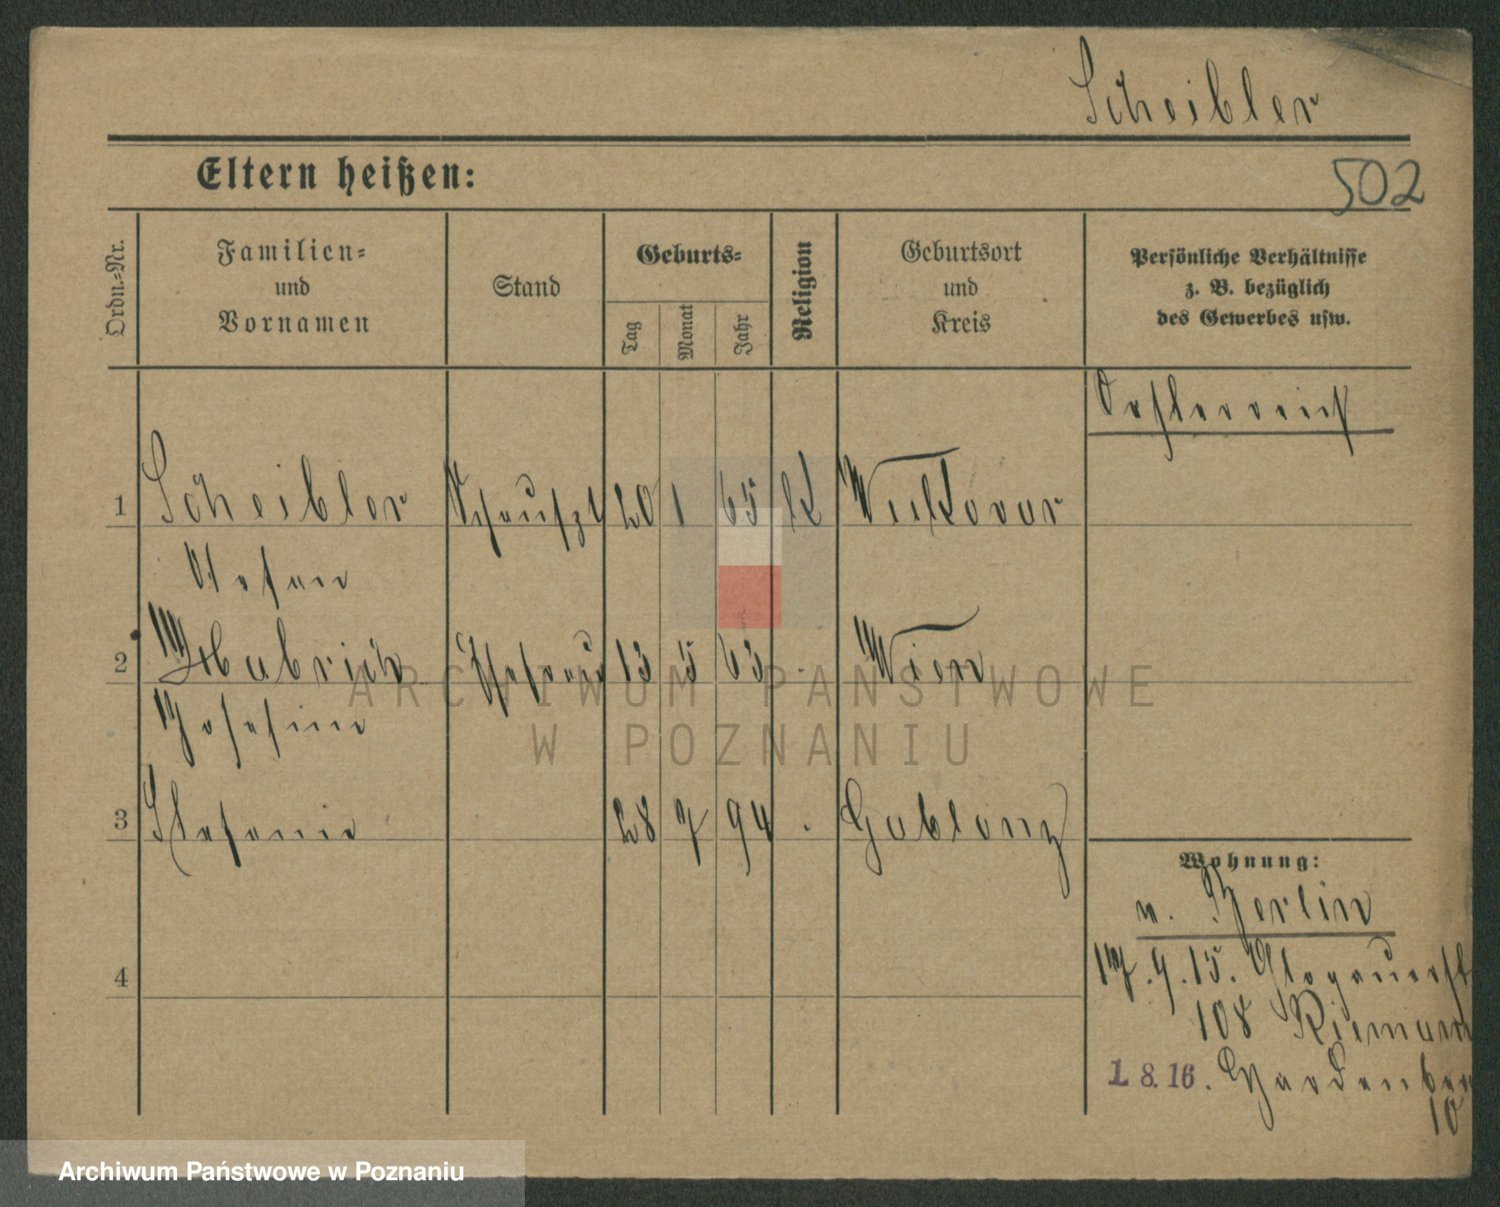 Scheibler
Eltern heißen:
502
Ordn.-Nr.
Familien-
und
Vornamen
Stand
Geburts-
Tag
Monat
Jahr
Religion
Geburtsort
und
Kreis
Persönliche Verhältnisse
z. B. bezüglich
des Gewerbes usw.
Oesterreich
1 Scheibler 20 1 65 k Vukovar
Stefan
2 Habrich Ehefrau 13 5 63 Wien
Josefine
3 Stefanie 28 7 94 Gablonz
4
Wohnung:
v. Berlin
17.9.15. Glogauerst
108 Riemann
1. 8. 16. Hardenber
10
ARCHIWUM PAŃSTWOWE
W POZNANIU
Archiwum Państwowe w Poznaniu